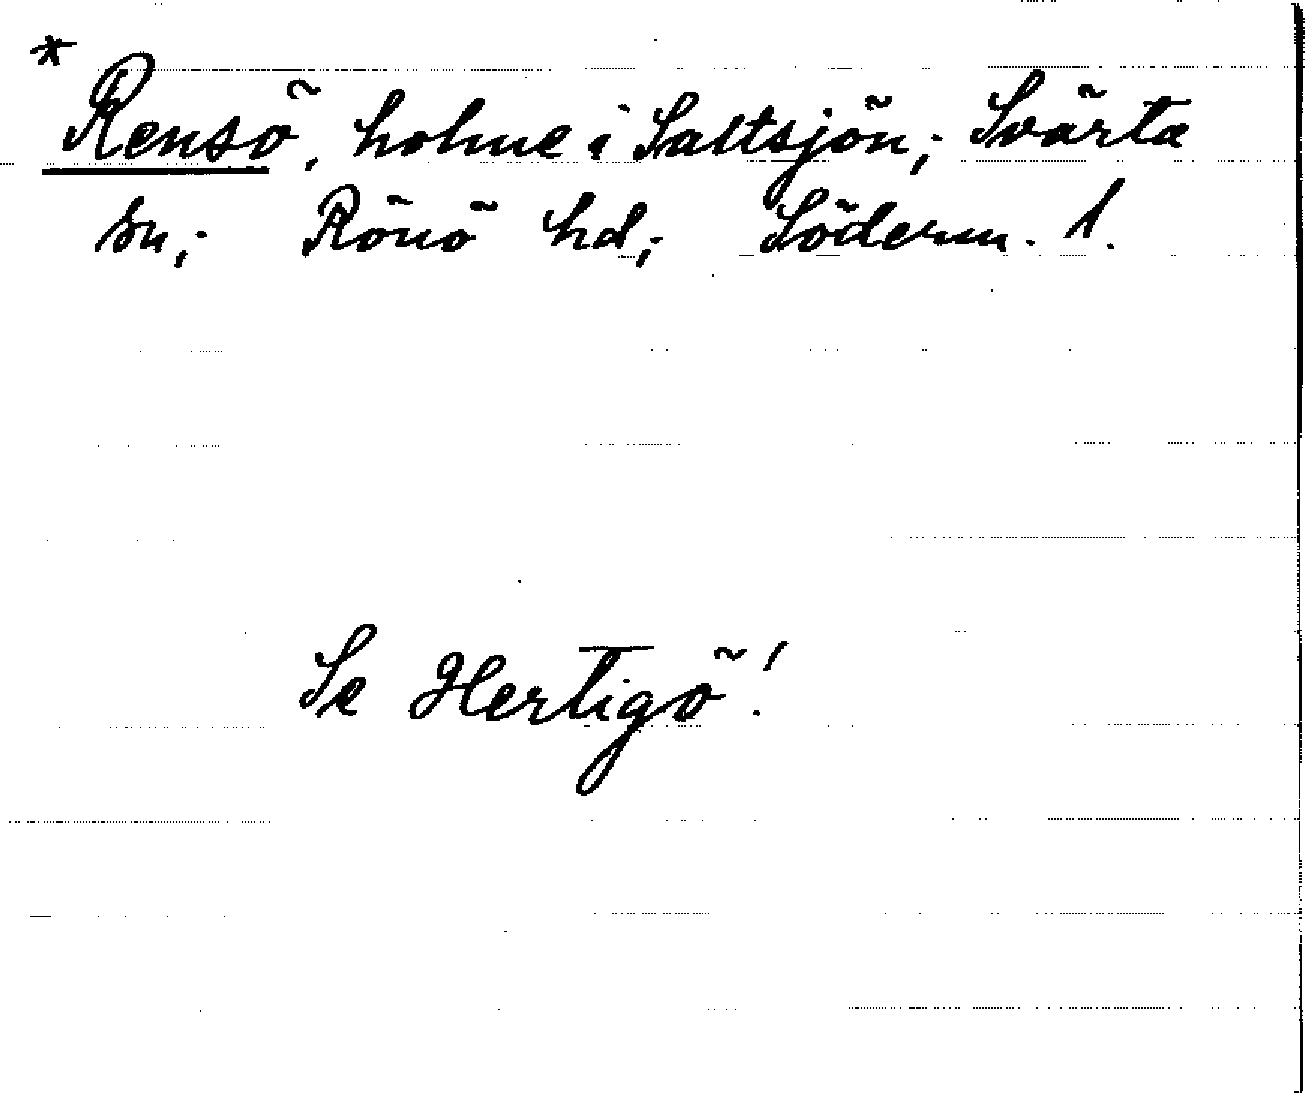 * Rensö, holme i Saltsjön; Svärta
sn; Rönö hd; Söderm. l.
Se Hertigö!